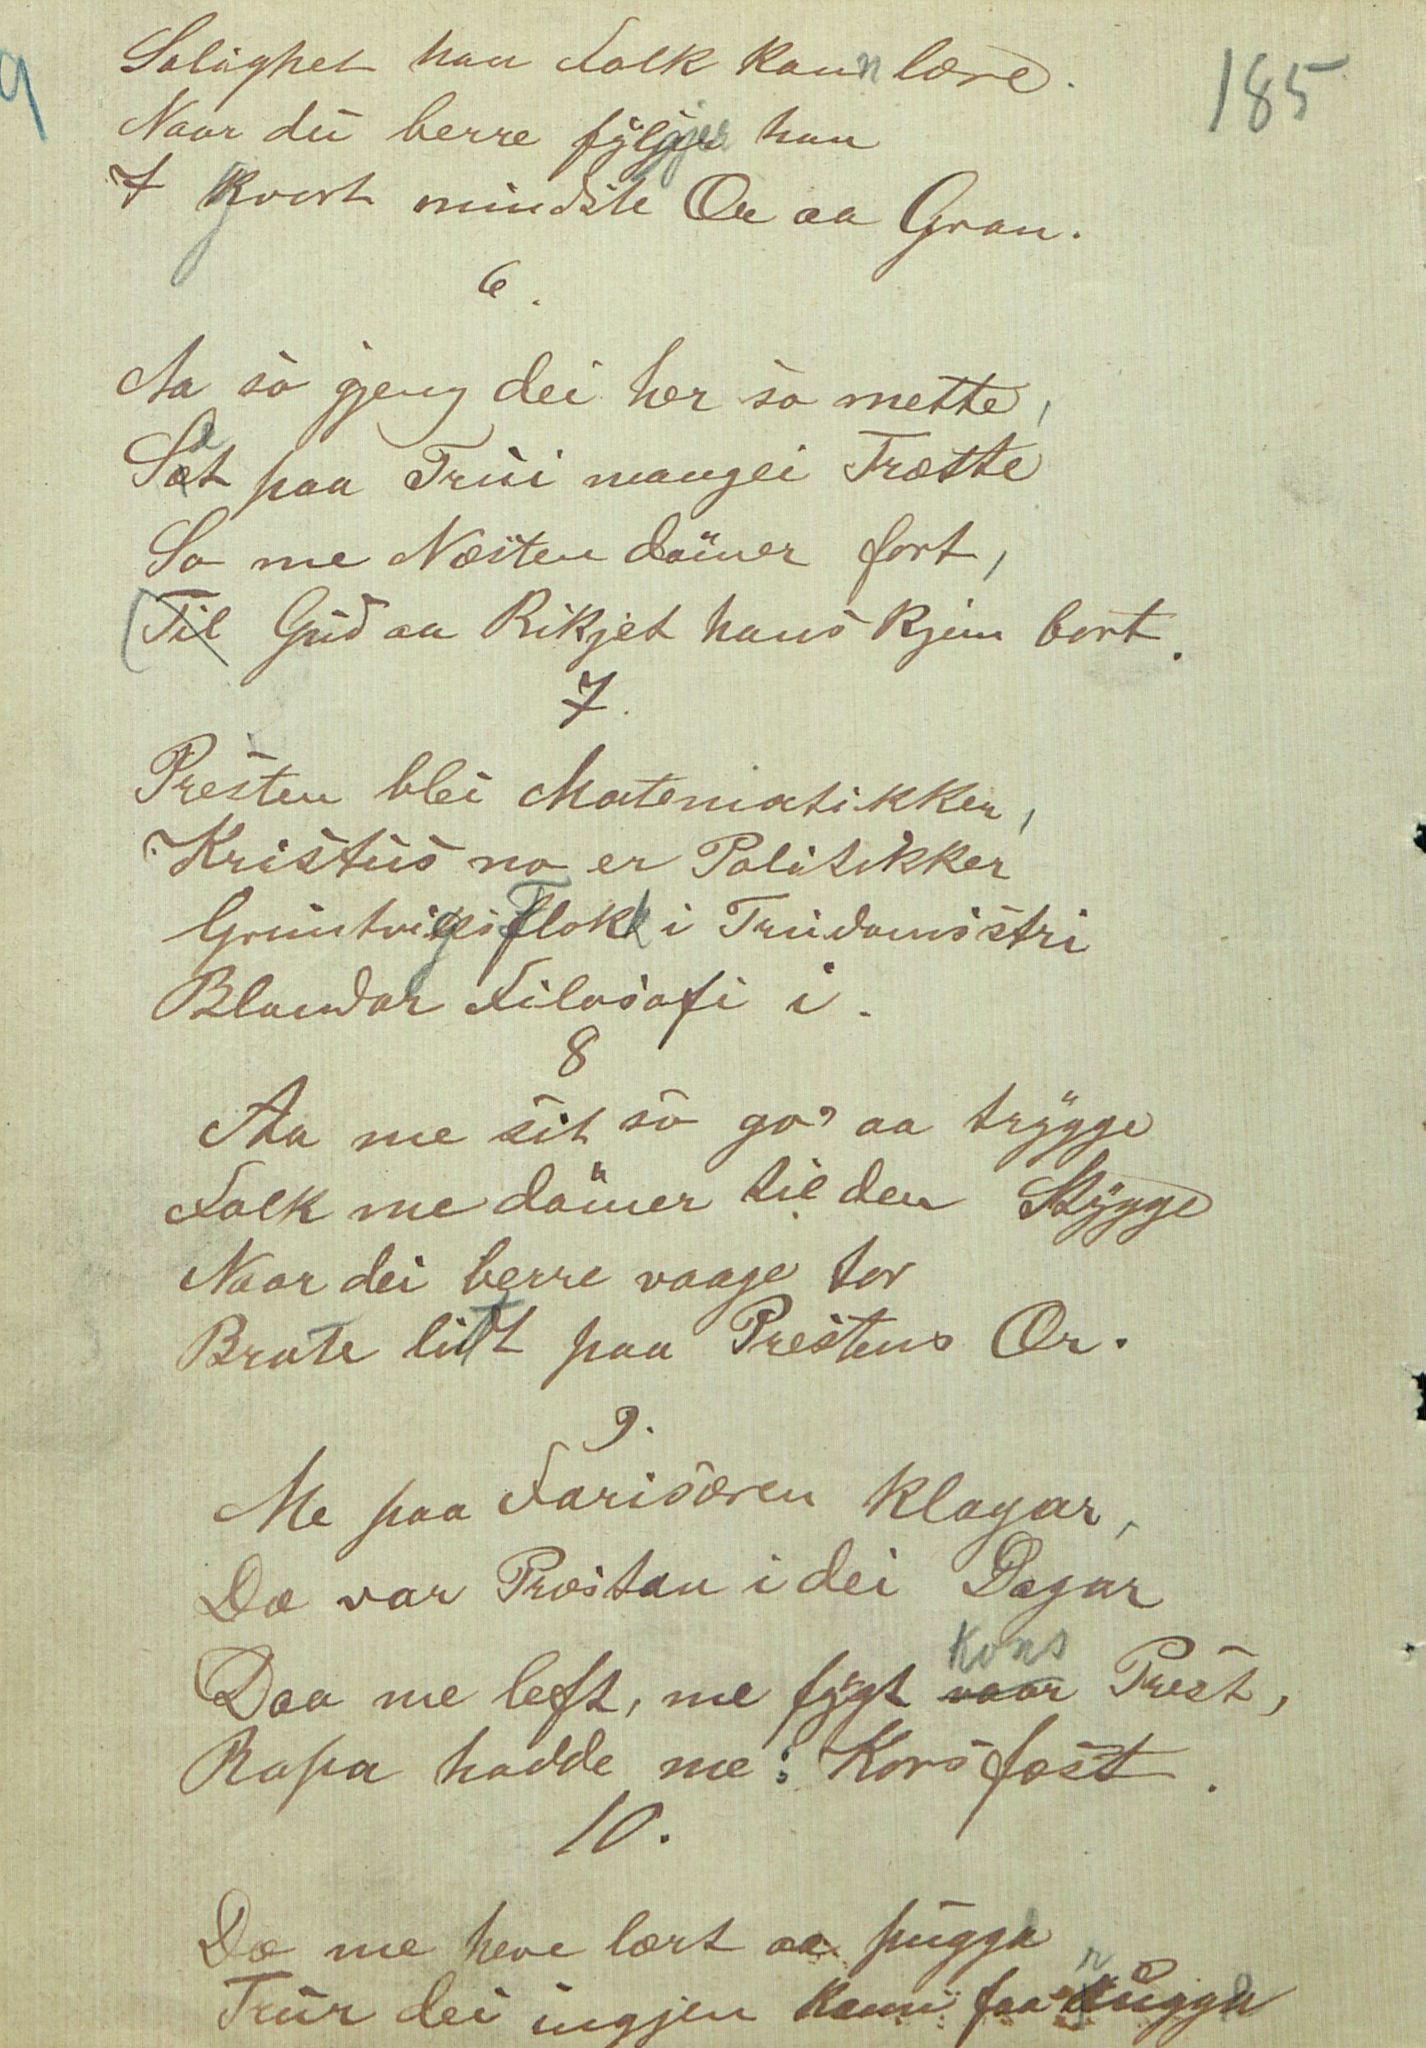 185
Salighet han Folk kann lære.
Naar du berre fylgjer han
I kvart mindste Or aa Gran.
6.
Aa so gjeng dei her so mette,
Sat paa Trui mangei Trætte
So me Næsten dømer fort,
Til Gud aa Rikjet hans kjem bort.
7.
Presten blei Matematikker,
Kristus no er Politikker
Gruntvigs Flokk i Trudomsstri
Blandar Filosofi i.
8
Aa me sit so go' aa trygge
Folk me dømer til den Stygge
Naar dei berre vaage tor
Brote litt paa Prestens Or.
9.
Me paa Farisæren klagar,
Dæ var Prestan i dei Dagar
kors
Daa me left, me fygt vaar Prest,
Raapa hadde me: Korsfæst.
10.
Dæ me heve lært aa pugga
Trur dei ingjen kann faa rugga